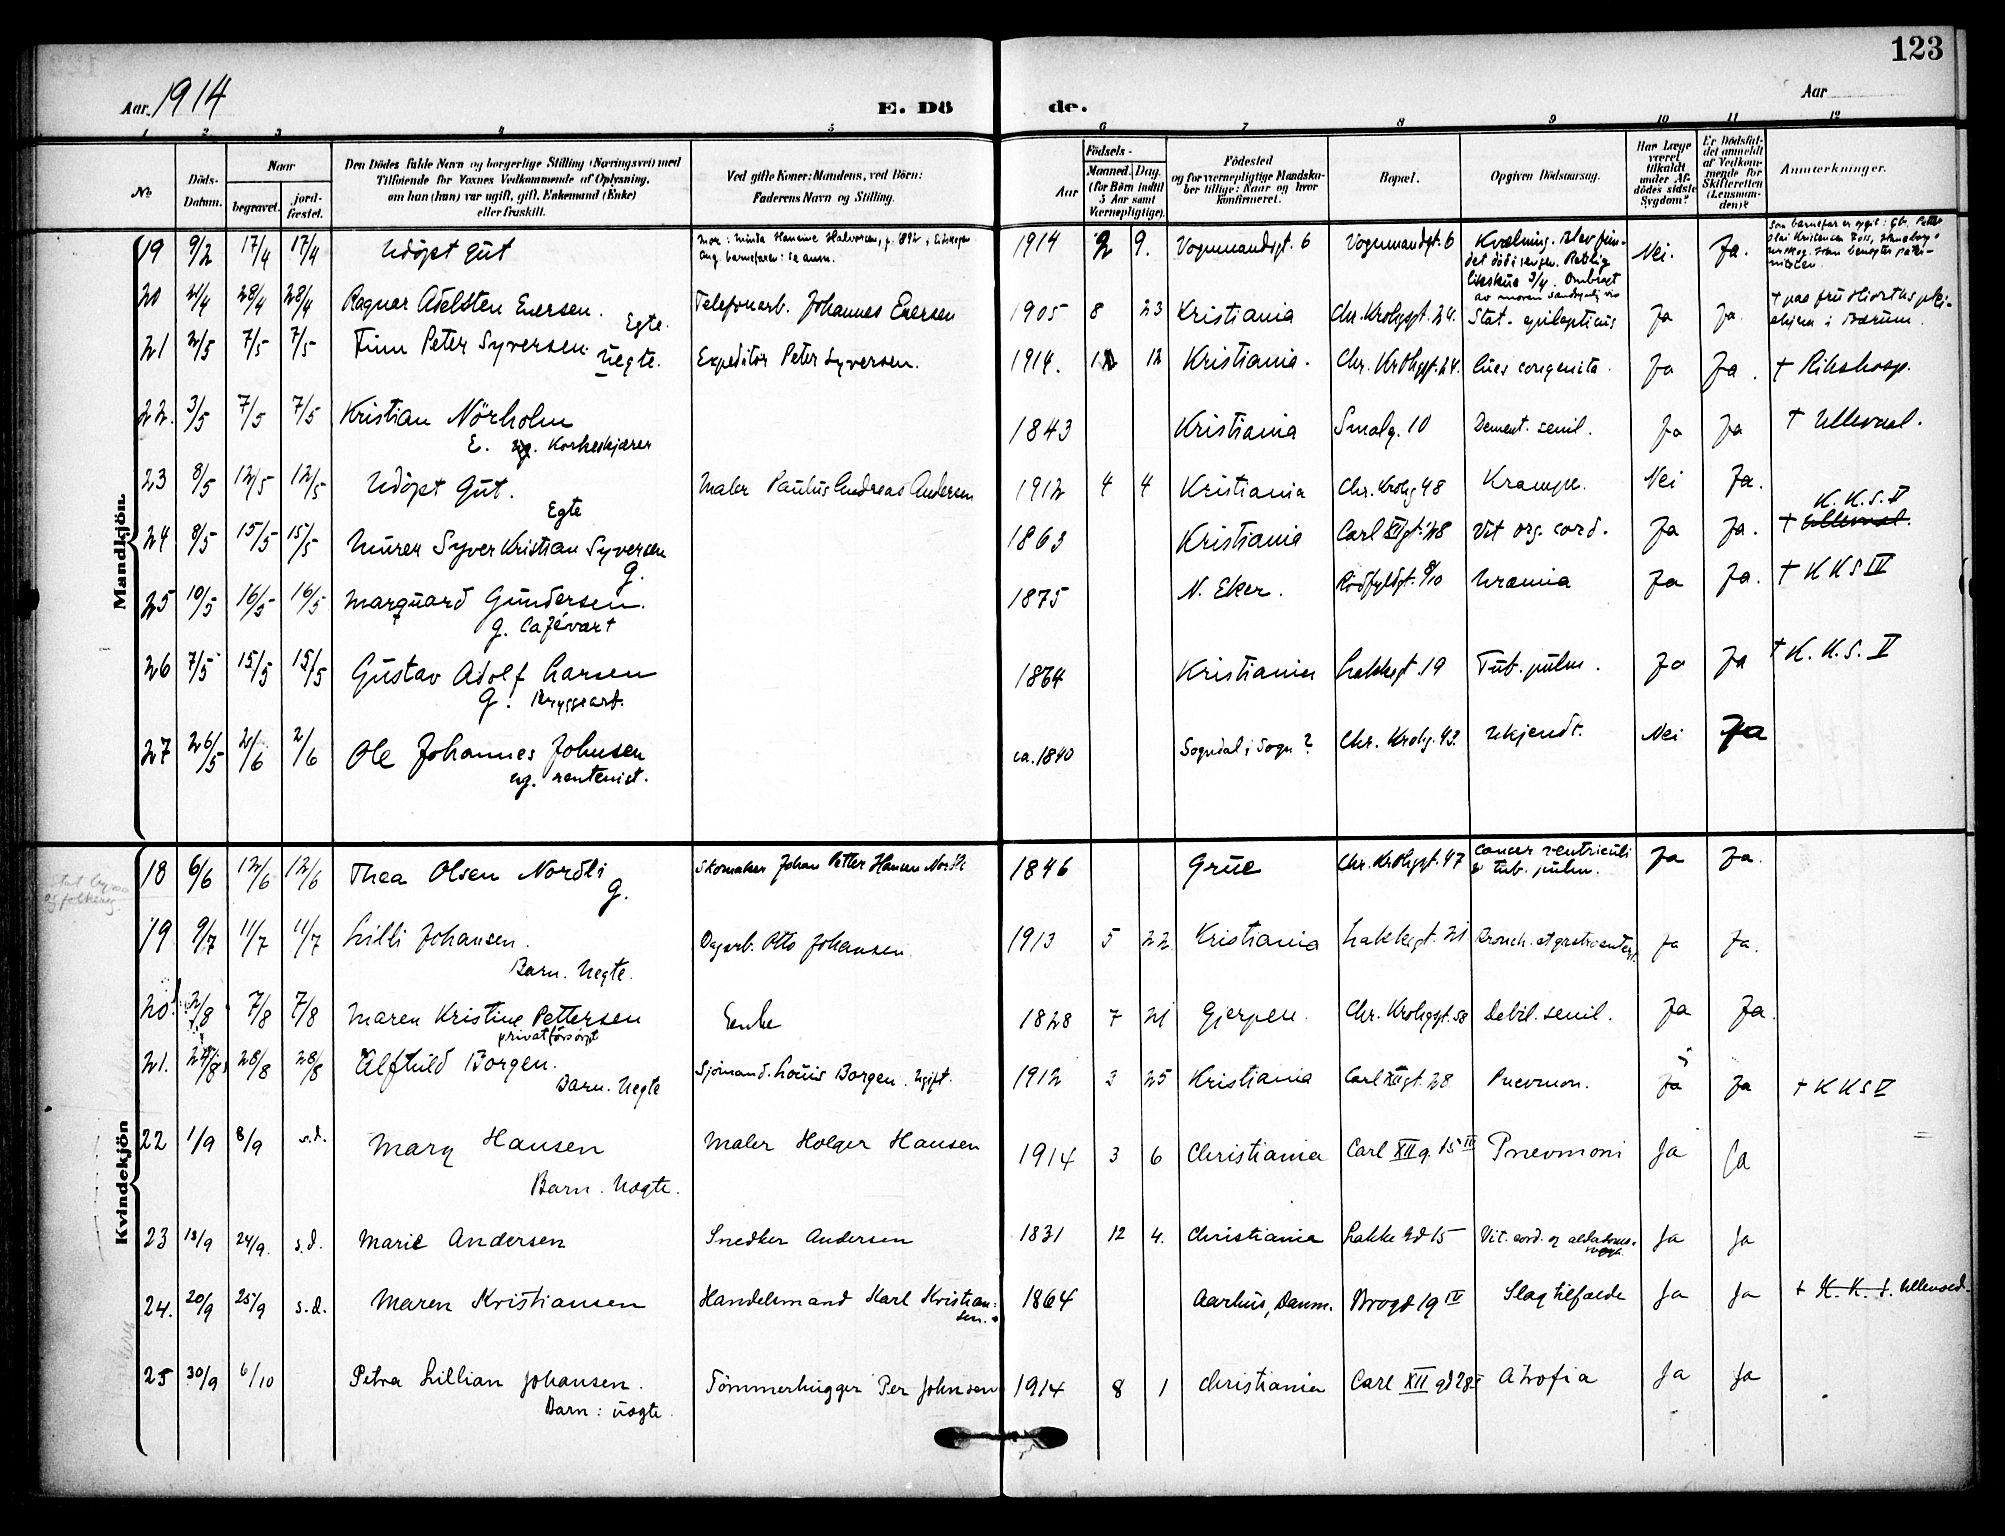 123
Aar 1914
E. Dö de.
Aar
1 2 3 4 5 6 7 8 9 10 11 12
No
Döds-Datum.
Naar
begravet.
jord-fæstet.
Den Dödes fulde Navn og borgerlige Stilling (Næringsvei) med
Tilföiende for Voxnes Vedkommende af Oplysning,
om han (hun) var ugift, gift, Enkemand (Enke)
eller fraskilt.
Ved gifte Koner: Mandens, ved Börn:
Faderens Navn og Stilling.
Födsels-
Aar
Maaned. Dag.
(for Börn indtil
5 Aar samt
Værnepligtige).
Födested
og for værnepligtige Mandska-
ber tillige: Naar og hvor
konfirmeret.
Bopæl.
Opgiven Dödsaarsag.
Har Læge
været
tilkaldt
under Af-
dödes sidste
Sygdom?
Er Dödsfal-
det anmeldt
af Vedkom-
mende for
Skifteretten
(Lensman-
den)?
Anmærkninger.
Mandkjön.
19 9/2 17/4 17/4 Udöpt gut 1914 2 9. Vognmandsgt. 6 Vognmandsgt. 6 Kvælning. Nei. Ja.
20 28/4 28/4 Ragnar Adelsten Enersen. Egte. Telefonarb. Johannes Enersen 1905 8 23 Kristiania Chr. Krohgsgt. 24. Stat. epilepticus Ja Ja.
21 2/5 7/5 7/5 Finn Peter Syversen. Uegte. Expeditör Peter Syversen. 1914. 12 Kristiania. Chr. Krohgsgt. 24. Lues congenita. Ja Ja. † Rikshosp.
22. 3/5 7/5 7/5 Kristian Nörholm
E. Korkeskjærer 1843 Kristiania Smalg. 10 Dement. senil. Ja Ja † Ullevaal.
23 8/5 12/5 12/5 Udöpt Gut. Egte Maler Paulus Andreas Andersen 1912 4 4 Kristiania Chr. Krohg 48 Krampe. Nei Ja.
24 8/5 15/5 15/5 Murer Syver Kristian Syversen
G. 1863 Kristiania Carl XII gt. 28 Vit. org. cord. Ja Ja. † Ullevaal. K.K.S. V
25 10/5 16/5 16/5 Marquard Gundersen.
g. Cafévært 1875 N. Eker. Rödfyldgt. 8/10 Uræmia Ja Ja. † K K S IV
26 7/5 15/5 15/5 Gustav Adolf Larsen
G. Bryggearb. 1864 Kristiania Lakkegt. 19 Tub. pulm. Ja Ja † K. K. S. V
27 26/5 2/6 2/6 Ole Johannes Johnsen
ug. rentenist. ca. 1840 Sogndal i Sogn? Chr. Krohg. 43. Ukjendt. Nei Ja
Kvindekjön
18 6/6 12/6 12/6 Thea Olsen Nordli
G. Skomaker Johan Petter Hansen Nordli 1846 Grue Chr. Krohgsgt. 47 Cancer ventriculi
& tub. pulm. Ja Ja.
19 9/7 11/7 11/7 Lilli Johansen.
Barn. Uegte. Dagarb. Otto Johansen. 1913 5 22 Kristiania Lakkegt. 21 Bronch. et gastroenterit. Ja Ja.
20 2/8 7/8 7/8 Maren Kristine Pettersen
privat forsörgt Enke 1828 7 21 Gjerpen. Chr. Krohgsgt. 58 Debil. senil. Ja Ja.
21. 28/8 28/8 Alfhild Borgen.
Barn. Uegte Sjömand. Louis Borgen. Ugift. 1912 3 25 Kristiania Carl XII gt. 28 Pnevmon. Ja Ja † K K S V
22 1/9 8/9 s.d. Mary Hansen
Barn. Uægte. Maler Holger Hansen 1914 3 6 Christiania Carl XII g. 15 III Pnevmoni Ja Ja
23 18/9 24/9. s.d. Marie Andersen Snedker Andersen 1831 12 4. Christiania Lakke gd 15 Vit. cord. og alderdoms-
svagh. Ja Ja
24. 20/9 25/9 s.d. Maren Kristiansen Handelsmand Karl Kristian-
sen. 1864 Aarhus, Danm. Brogd 19 IV Slagtilfælde Ja Ja † K. K. S. Ullevaal.
25 30/9 6/10 Petra Lillian Johansen.
Barn: uægte. Tömmerhugger Per Johnsen 1914 8 1 Christiania Carl XII gd 28 Atrofia Ja Ja